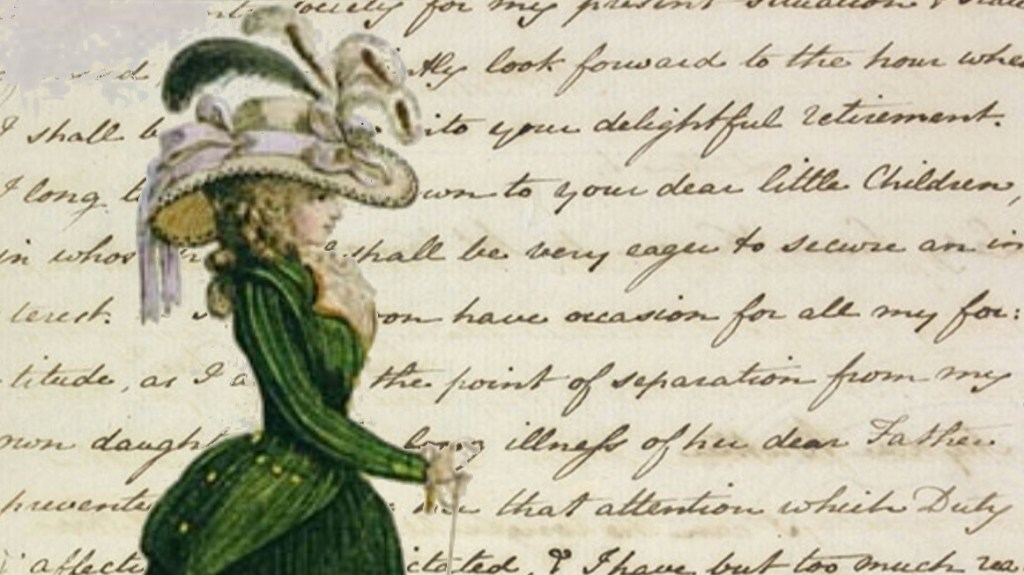 for my present situation &
look forward to the hour whe
I shall b your delightful retirement.
I long t wn to your dear little Children,
in whos shall be very eager to secure an in
terest. on have occasion for all my for:
titude, as I a the point of separation from my
own daught long illness of her dear Father
prevente that attention which Duty
affecti ctated, & I have but too much rea